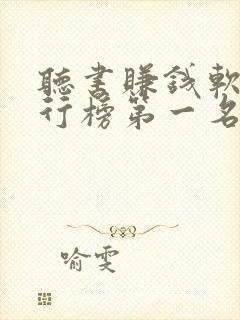 聽書賺錢軟
行榜第一名
喻雯